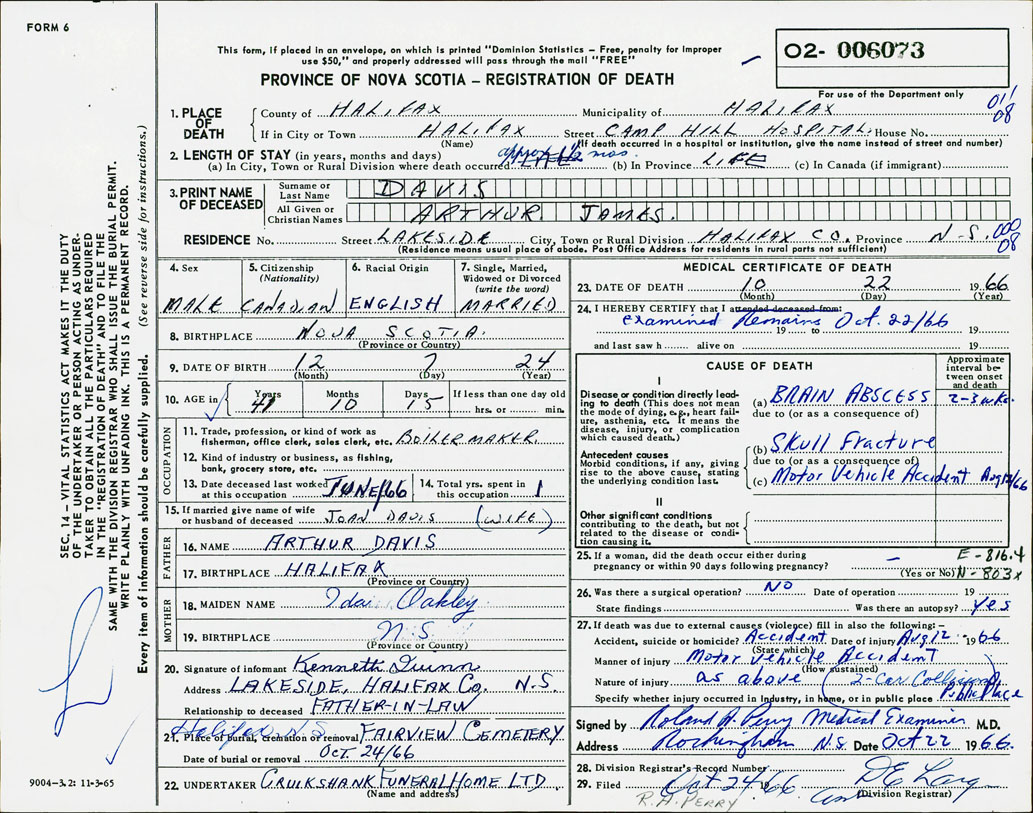 FORM 6
This form, if placed in an envelope, on which is printed "Dominion Statistics – Free, penalty for improper
use $50," and properly addressed will pass through the mail "FREE"
PROVINCE OF NOVA SCOTIA – REGISTRATION OF DEATH
O2- 006073
For use of the Department only
011
08
1. PLACE OF DEATH
County of HALIFAX Municipality of HALIFAX
If in City or Town HALIFAX Street CAMP HILL HOSPITAL House No.
(Name) (If death occurred in a hospital or institution, give the name instead of street and number)
2. LENGTH OF STAY (in years, months and days) approx 1½ mos.
(a) In City, Town or Rural Division where death occurred LIFE (b) In Province LIFE (c) In Canada (if immigrant)
3. PRINT NAME OF DECEASED
Surname or Last Name DAVIS
All Given or Christian Names ARTHUR JAMES.
RESIDENCE No. Street LAKESIDE City, Town or Rural Division HALIFAX CO. Province N-S. 000
08
(Residence means usual place of abode. Post Office Address for residents in rural parts not sufficient)
4. Sex MALE
5. Citizenship (Nationality) CANADIAN
6. Racial Origin ENGLISH
7. Single, Married, Widowed or Divorced (write the word) MARRIED
8. BIRTHPLACE NOVA SCOTIA.
(Province or Country)
9. DATE OF BIRTH 12 7 24
(Month) (Day) (Year)
10. AGE in Years 41 Months 10 Days 15 If less than one day old hrs. or min.
OCCUPATION
11. Trade, profession, or kind of work as
fisherman, office clerk, sales clerk, etc. BOILERMAKER.
12. Kind of industry or business, as fishing,
bank, grocery store, etc.
13. Date deceased last worked at this occupation JUNE/66
14. Total yrs. spent in this occupation 1
15. If married give name of wife
or husband of deceased JOAN DAVIS (WIFE)
FATHER
16. NAME ARTHUR DAVIS
17. BIRTHPLACE HALIFAX
(Province or Country)
MOTHER
18. MAIDEN NAME Ida Oakley
19. BIRTHPLACE N.S.
(Province or Country)
20. Signature of informant Kenneth Dunn
Address LAKESIDE, HALIFAX Co. N.S.
Relationship to deceased FATHER-IN-LAW
Halifax, N.S.
21. Place of burial, cremation or removal FAIRVIEW CEMETERY
Date of burial or removal OCT. 24/66
22. UNDERTAKER CRUIKSHANK FUNERAL HOME LTD.
(Name and address)
MEDICAL CERTIFICATE OF DEATH
23. DATE OF DEATH 10 22 1966
(Month) (Day) (Year)
24. I HEREBY CERTIFY that I attended deceased from:
examined Remains Oct. 22/66
19 to 19
and last saw h alive on 19
CAUSE OF DEATH
Approximate interval between onset and death
I
Disease or condition directly leading to death (This does not mean the mode of dying, e.g., heart failure, asthenia, etc. It means the disease, injury, or complication which caused death.)
(a) BRAIN ABSCESS 2-3 wks.
due to (or as a consequence of)
Antecedent causes
Morbid conditions, if any, giving rise to the above cause, stating the underlying condition last.
(b) Skull Fracture
due to (or as a consequence of)
(c) Motor Vehicle Accident Aug 12/66
II
Other significant conditions
contributing to the death, but not related to the disease or condition causing it.
25. If a woman, did the death occur either during
pregnancy or within 90 days following pregnancy? –
(Yes or No)
E-816.4
N-803x
26. Was there a surgical operation? NO Date of operation 19
State findings Was there an autopsy? yes
27. If death was due to external causes (violence) fill in also the following: –
Accident, suicide or homicide? Accident Date of injury Aug 12 1966
(State which)
Manner of injury Motor Vehicle Accident
(How sustained)
Nature of injury as above (2-Car Collision)
Specify whether injury occurred in industry, in home, or in public place Public Place
Signed by Roland A. Perry Medical Examiner M.D.
Address Rockingham N.S. Date Oct 22 1966.
28. Division Registrar's Record Number
29. Filed Oct 24 1966
(Division Registrar)
R.A. PERRY
SEC. 14 – VITAL STATISTICS ACT MAKES IT THE DUTY
OF THE UNDERTAKER OR PERSON ACTING AS UNDER-
TAKER TO OBTAIN ALL THE PARTICULARS REQUIRED
IN THE "REGISTRATION OF DEATH" AND TO FILE THE
SAME WITH THE DIVISION REGISTRAR WHO SHALL ISSUE THE BURIAL PERMIT.
WRITE PLAINLY WITH UNFADING INK. THIS IS A PERMANENT RECORD.
Every item of information should be carefully supplied. (See reverse side for instructions.)
9004-3.2: 11-3-65